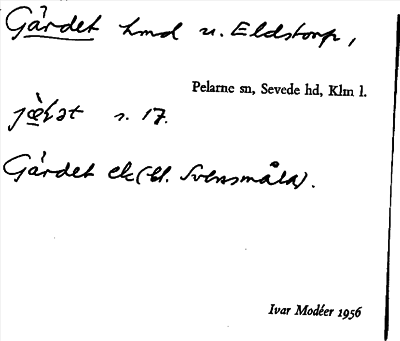 Gärdet hmd u. Eldstorp,
Pelarne sn, Sevede hd, Klm l.
s. 17.
Gärdet ek (bl. Svensmåla).
Ivar Modéer 1956